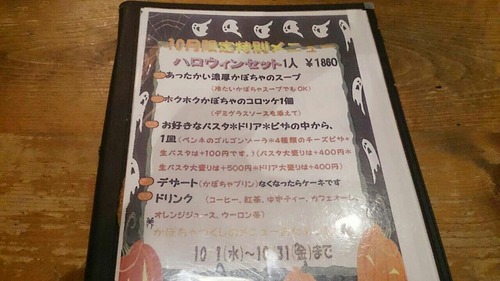 10月限定特別メニュー
ハロウィンセット1人 ¥1860
あったかい濃厚かぼちゃのスープ
(冷たいかぼちゃスープでもOK)
ホクホクかぼちゃのコロッケ1個
(デミグラスソースを添えて)
お好きなパスタ*ドリア*ピザの中から、
1皿(ペンネのゴルゴンソーラ*4種類のチーズピザ*
生パスタは+100円です。)(パスタ大盛りは+400円*
生パスタ大盛りは+500円*ドリア大盛り+400円)
デザート(かぼちゃプリン)なくなったらケーキです
ドリンク (コーヒー、紅茶、ゆずティー、カフェオーレ、
オレンジジュース、ウーロン茶)
かぼちゃづくしのメニュー
10/1(水)〜10/31(金)まで